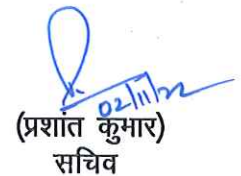 02/11/22
(प्रशांत कुमार)
सचिव